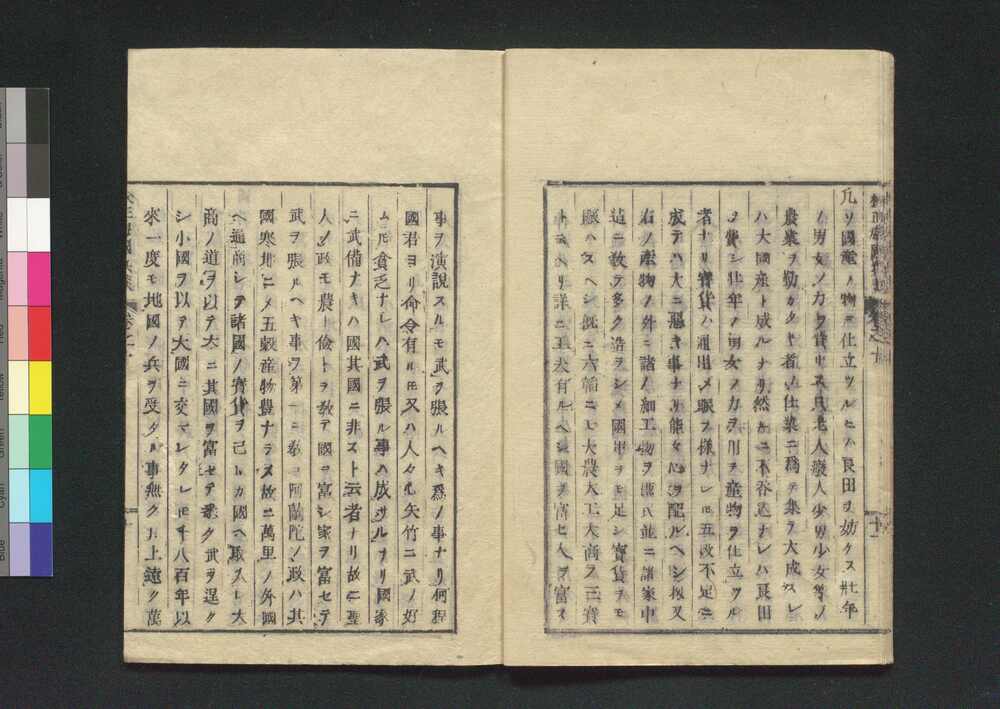 凢ソ國產ノ物ヲ仕立ツルニハ良田ヲ妨ケス壯年
ノ男女ノ力ヲ費サス只老人癈人少男少女等ノ
農業ヲ勤カタキ者ノ仕業ニ爲テ集テ大成スレ
ハ大國產ト成ルナリ然ルニ不吞込ナレハ良田
ヲ費シ壯年ノ男女ノ力ヲ用テ產物ヲ仕立ツル
者ナリ寶貨ハ涌出メ賑フ樣ナレ𪜈五穀不足ニ
成テハ大ニ惡キ事ナリ能々心ヲ配ルヘシ扨又
右ノ產物ノ外ニ諸ノ細工物ヲ
造ニ教テ多ク造ヲシメ國用ヲモ足シ寶貨ヲモ
賑ハスヘシ既ニ六韜ニモ大農大工大商ヲ三寶
詳ニ工夫有ルヘシ國ヲ富セ人ヲ富ス
事ヲ演說スルモ武ヲ張ルヘキ爲ノ事ナリ何程
國君ヨリ命令有ル𪜈又ハ人々心矢竹ニ武ノ好
ム𪜈貧乏ナレハ武ヲ張ル事ハ成サルナリ國家
ニ武備ナキハ國其國ニ非スト云者ナリ故ニ聖
人ノ政モ農ト儉トヲ敎テ國ヲ富シ家ヲ富セテ
武ヲ張ルヘキ事ヲ第一ニ敎ヨ阿蘭陀ノ政ハ其
國寒地ニメ五穀產物豊ナラス故ニ萬里ノ外國
ヘ通商シテ諸國ノ寶貨ヲ己レカ國ヘ取入レ大
商ノ道ヲ以テ大ニ其國ヲ富セテ悉ク武ヲ逞ク
シ小國ヲ以テ大國ニ交ハレタレ𪜈千八百年以
來一度モ他國ノ兵ヲ受タル事無ク其上遠ク萬